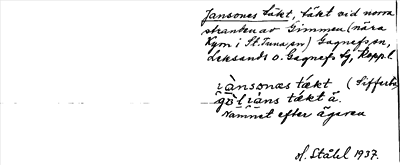 Jansones täkt, täkt vid norra
stranden av Gimmen (nära
Kyrn i St. Tuna sn) Gagnefs sn,
Leksands o. Gagnefs tg, Koppl.
jànsonæs tækt (Sifferbo
jans tækt
Namnet efter ägaren
H. Ståhl 1937.